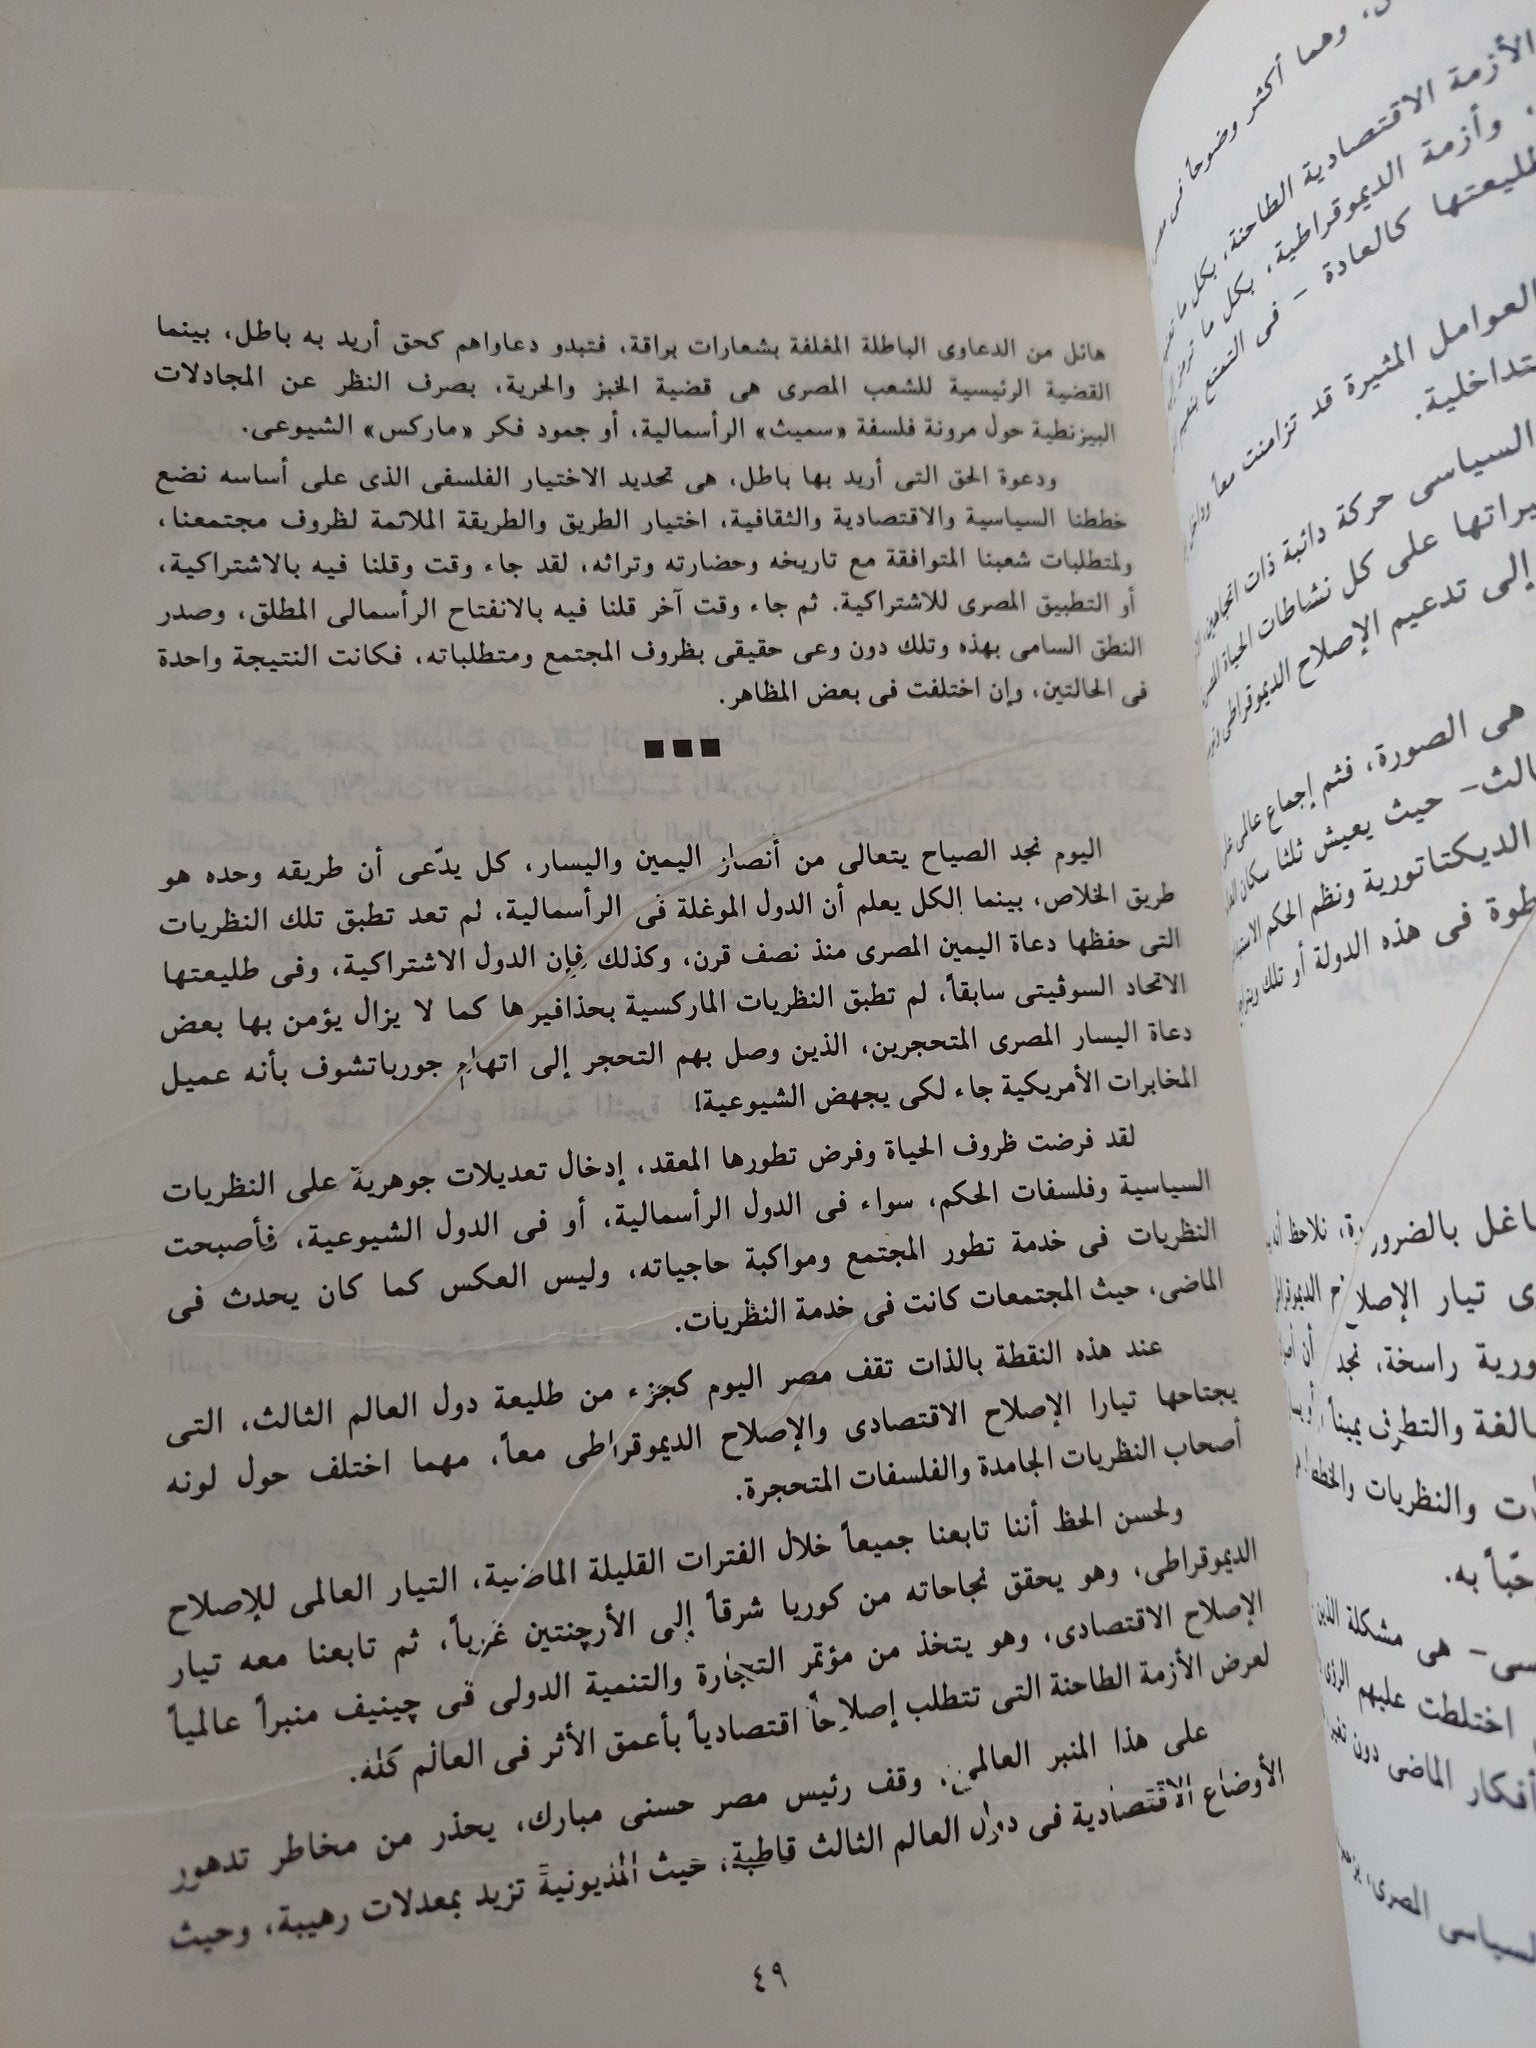 هائل من الدعاوى الباطلة المغلفة بشعارات براقة، فتبدو دعاواهم كحق أريد به باطل، بينما
القضية الرئيسية للشعب المصرى هى قضية الخبز والحرية، بصرف النظر عن المجادلات
البيزنطية حول مرونة فلسفة «سميث» الرأسمالية، أو جمود فكر «ماركس» الشيوعى.
ودعوة الحق التى أريد بها باطل، هى تحديد الاختيار الفلسفى الذى على أساسه نضع
خططنا السياسية والاقتصادية والثقافية، اختيار الطريق والطريقة الملائمة لظروف مجتمعنا،
ولمتطلبات شعبنا المتوافقة مع تاريخه وحضارته وتراثه، لقد جاء وقت وقلنا فيه بالاشتراكية،
أو التطبيق المصرى للاشتراكية. ثم جاء وقت آخر قلنا فيه بالانفتاح الرأسمالى المطلق، وصدر
النطق السامى بهذه وتلك دون وعى حقيقى بظروف المجتمع ومتطلباته، فكانت النتيجة واحدة
فى الحالتين، وإن اختلفت فى بعض المظاهر.
اليوم نجد الصياح يتعالى من أنصار اليمين واليسار، كل يدّعى أن طريقه وحده هو
طريق الخلاص، بينما الكل يعلم أن الدول الموغلة فى الرأسمالية، لم تعد تطبق تلك النظريات
التى حفظها دعاة اليمين المصرى منذ نصف قرن، وكذلك فإن الدول الاشتراكية، وفى طليعتها
الاتحاد السوڤيتى سابقاً، لم تطبق النظريات الماركسية بحذافيرها كما لا يزال يؤمن بها بعض
دعاة اليسار المصرى المتحجرين، الذين وصل بهم التحجر إلى اتهام جورباتشوف بأنه عميل
المخابرات الأمريكية جاء لكى يجهض الشيوعية!
لقد فرضت ظروف الحياة وفرض تطورها المعقد، إدخال تعديلات جوهرية على النظريات
السياسية وفلسفات الحكم، سواء فى الدول الرأسمالية، أو فى الدول الشيوعية، فأصبحت
النظريات فى خدمة تطور المجتمع ومواكبة حاجياته، وليس العكس كما كان يحدث فى
الماضى، حيث المجتمعات كانت فى خدمة النظريات.
عند هذه النقطة بالذات تقف مصر اليوم كجزء من طليعة دول العالم الثالث، التى
يجتاحها تيارا الإصلاح الاقتصادى والإصلاح الديموقراطى معاً، مهما اختلف حول لونه
أصحاب النظريات الجامدة والفلسفات المتحجرة.
ولحسن الحظ أننا تابعنا جميعاً خلال الفترات القليلة الماضية، التيار العالمى للإصلاح
الديموقراطى، وهو يحقق نجاحاته من كوريا شرقاً إلى الأرچنتين غرباً، ثم تابعنا معه تيار
الإصلاح الاقتصادى، وهو يتخذ من مؤتمر التجارة والتنمية الدولى فى چينيف منبراً عالمياً
لعرض الأزمة الطاحنة التى تتطلب إصلاحاً اقتصادياً بأعمق الأثر فى العالم كله.
على هذا المنبر العالمى، وقف رئيس مصر حسنى مبارك، يحذر من مخاطر تدهور
الأوضاع الاقتصادية فى دول العالم الثالث قاطبة، حيث المديونية تزيد بمعدلات رهيبة، وحيث
٤٩
وهما أكثر وضوحاً فى
الأزمة الاقتصادية الطاحنة، بكل ما
وأزمة الديموقراطية، بكل ما ترمز
كالعادة - فى التمتع
العوامل المثيرة قد تزامنت معاً
السياسى حركة دائبة ذات اتجاهين
على كل نشاطات الحياة
إلى تدعيم الإصلاح الديموقراطى
هى الصورة، فثم إجماع عالمى
حيث يعيش ثلثا سكان
الديكتاتورية ونظم الحكم
فى هذه الدولة أو تلك
بالضرورة، نلاحظ
تيار الإصلاح
راسخة، نجد أن
والتطرف يميناً أو
والنظريات والخطط
به.
هى مشكلة الذين
اختلطت عليهم
أفكار الماضى دون
المصرى،